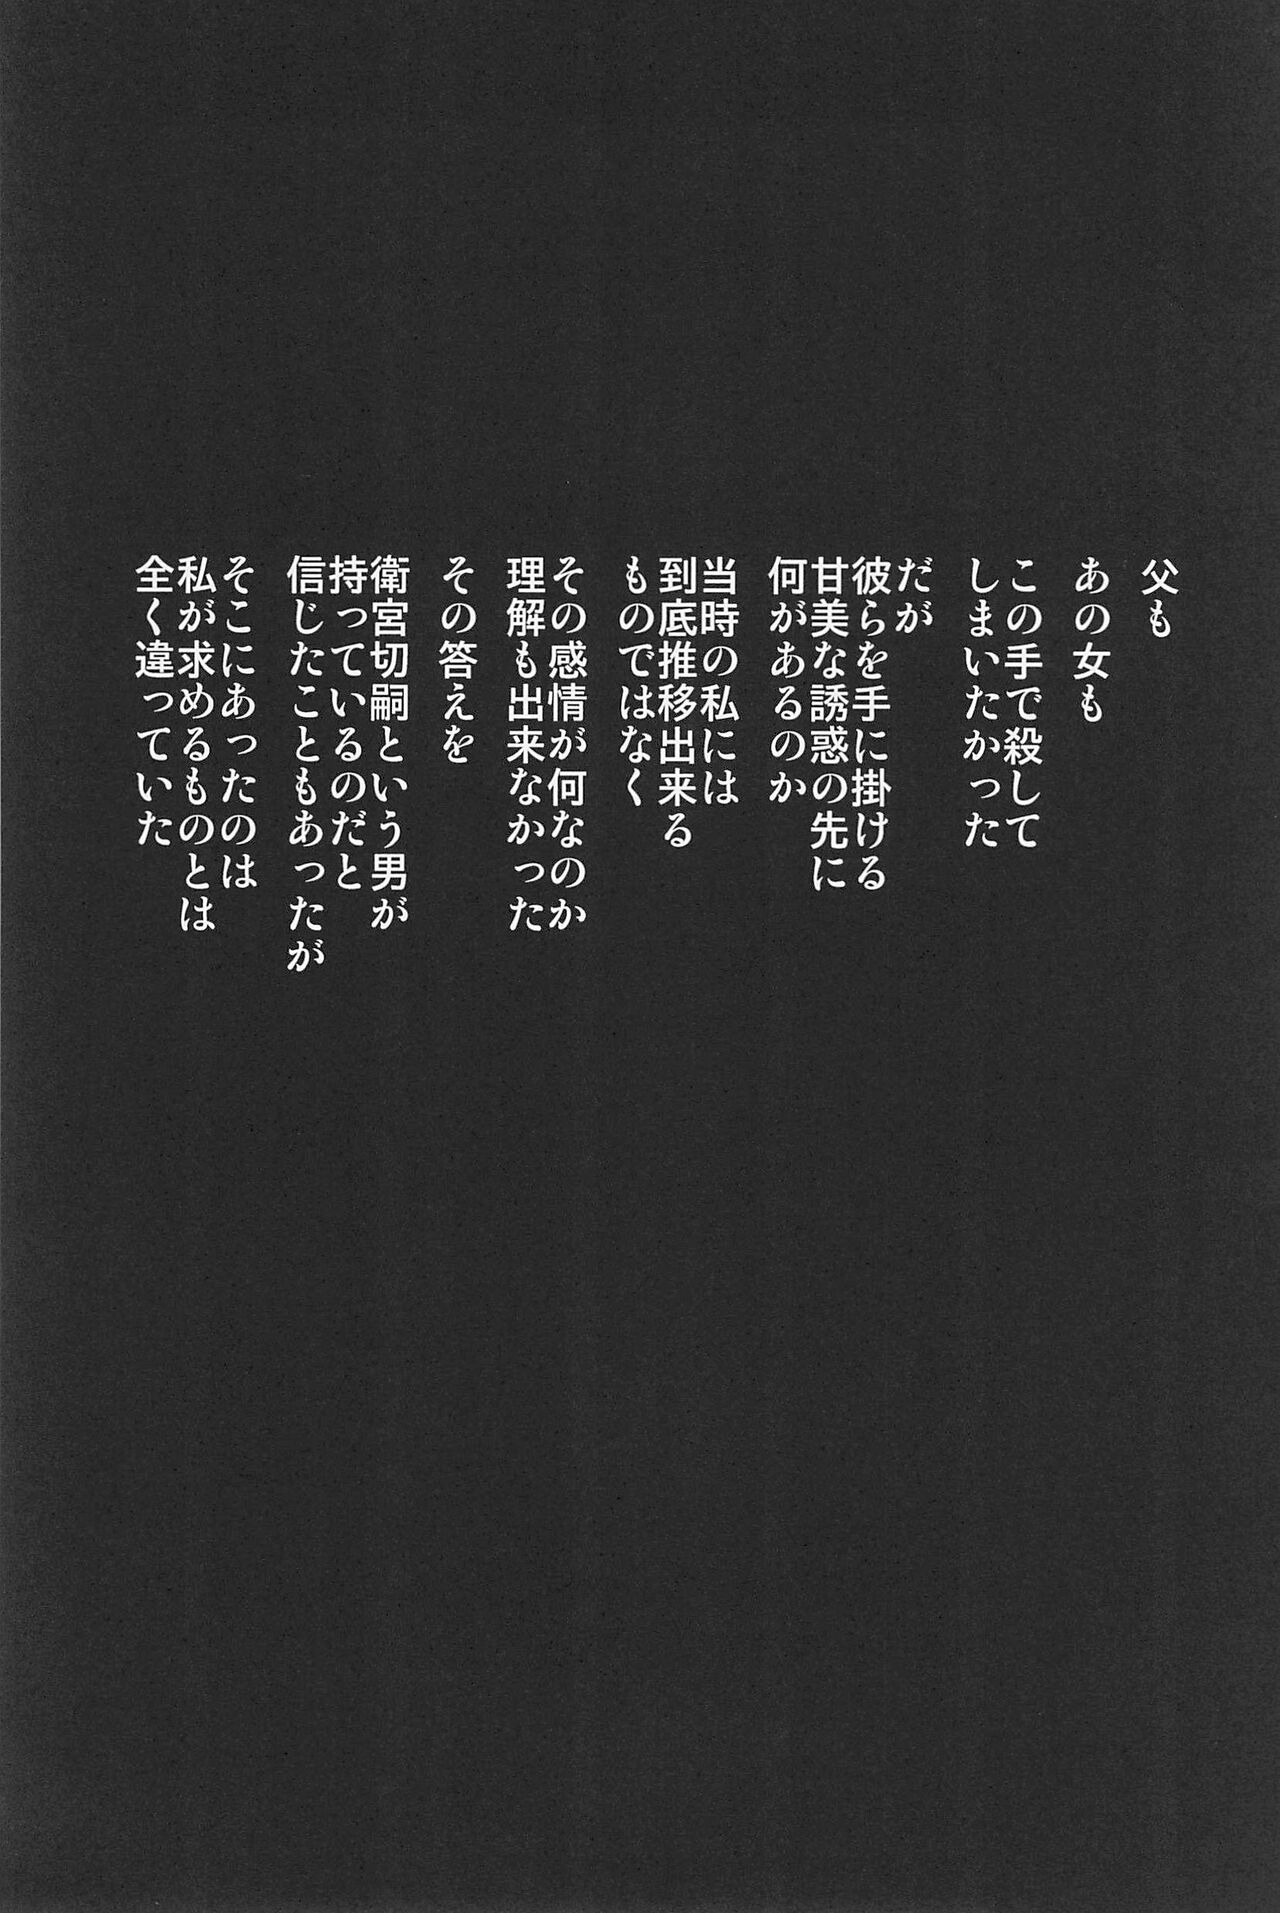 父も
あの女も
この手で殺して
しまいたかった
だが
彼らを手に掛ける
甘美な誘惑の先に
何があるのか
当時の私には
到底推移出来る
ものではなく
その感情が何なのか
理解も出来なかった
その答えを
衛宮切嗣という男が
持っているのだと
信じたこともあったが
そこにあったのは
私が求めるものとは
全く違っていた